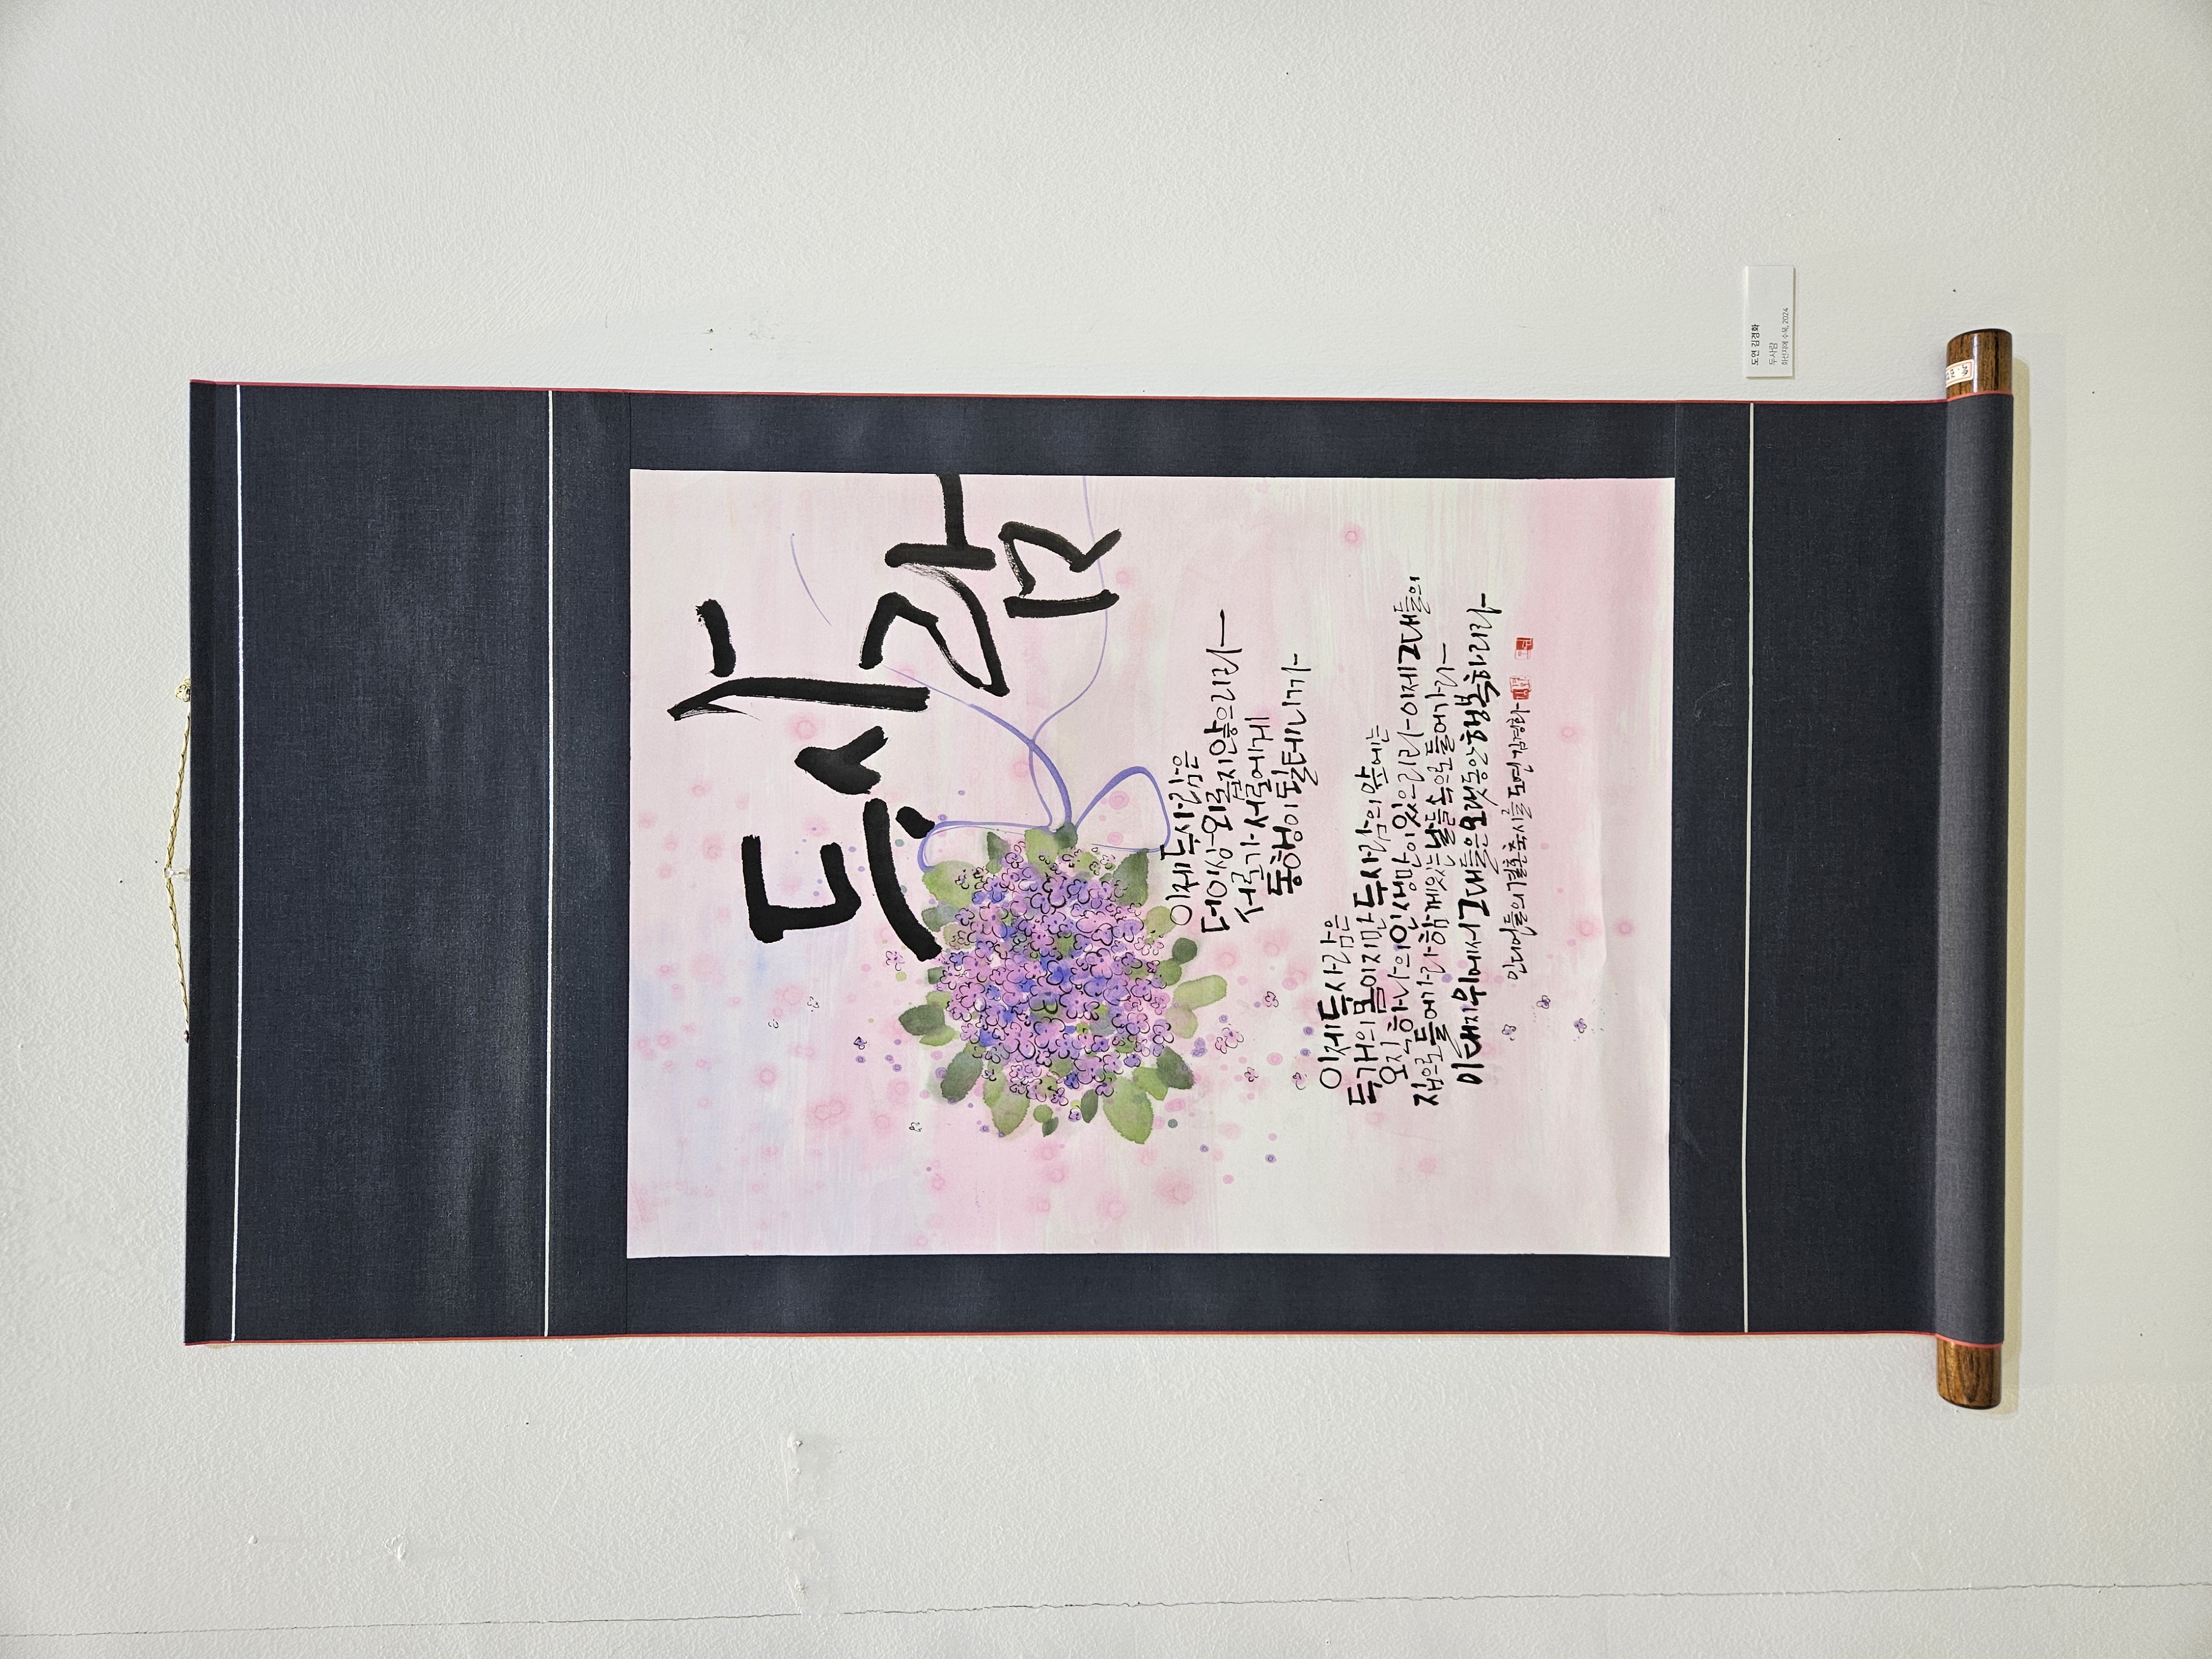 두사람
이제두사람은
더이상외롭지않으리라
서로가서로에게
동행이될테니까
이제두사람은
두개의몸이지만두사람의앞에는
오직하나의인생만이있으리라 이제그대들의
집으로들어가라 함께있는날들속으로들어가라
이대지위에서그대들은오랫동안행복하리라
인디언들의결혼축시를 도연김경화
도연 김경화
두사람
화선지에 수묵, 2024